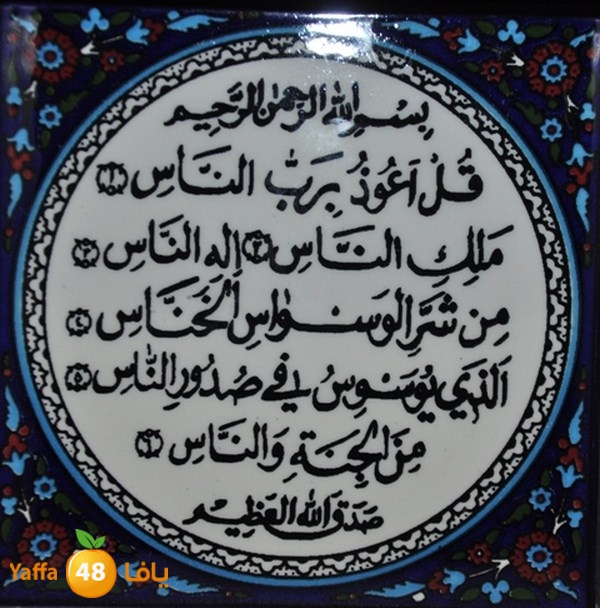 بِسْمِ اللهِ الرَّحْمٰنِ الرَّحِيمِ
قُلْ اَعُوذُ بِرَبِّ النَّاسِ ﴿١﴾
مَلِكِ النَّاسِ ﴿٢﴾ اِلٰهِ النَّاسِ ﴿٣﴾
مِن شَرِّ الوَسْوَاسِ الْخَنَّاسِ ﴿٤﴾
الَّذِي يُوَسْوِسُ فِي صُدُورِ النَّاسِ ﴿٥﴾
مِنَ الْجِنَّةِ وَالنَّاسِ ﴿٦﴾
صَدَقَ اللهُ العَظِيم
Yaffa 48 يافا